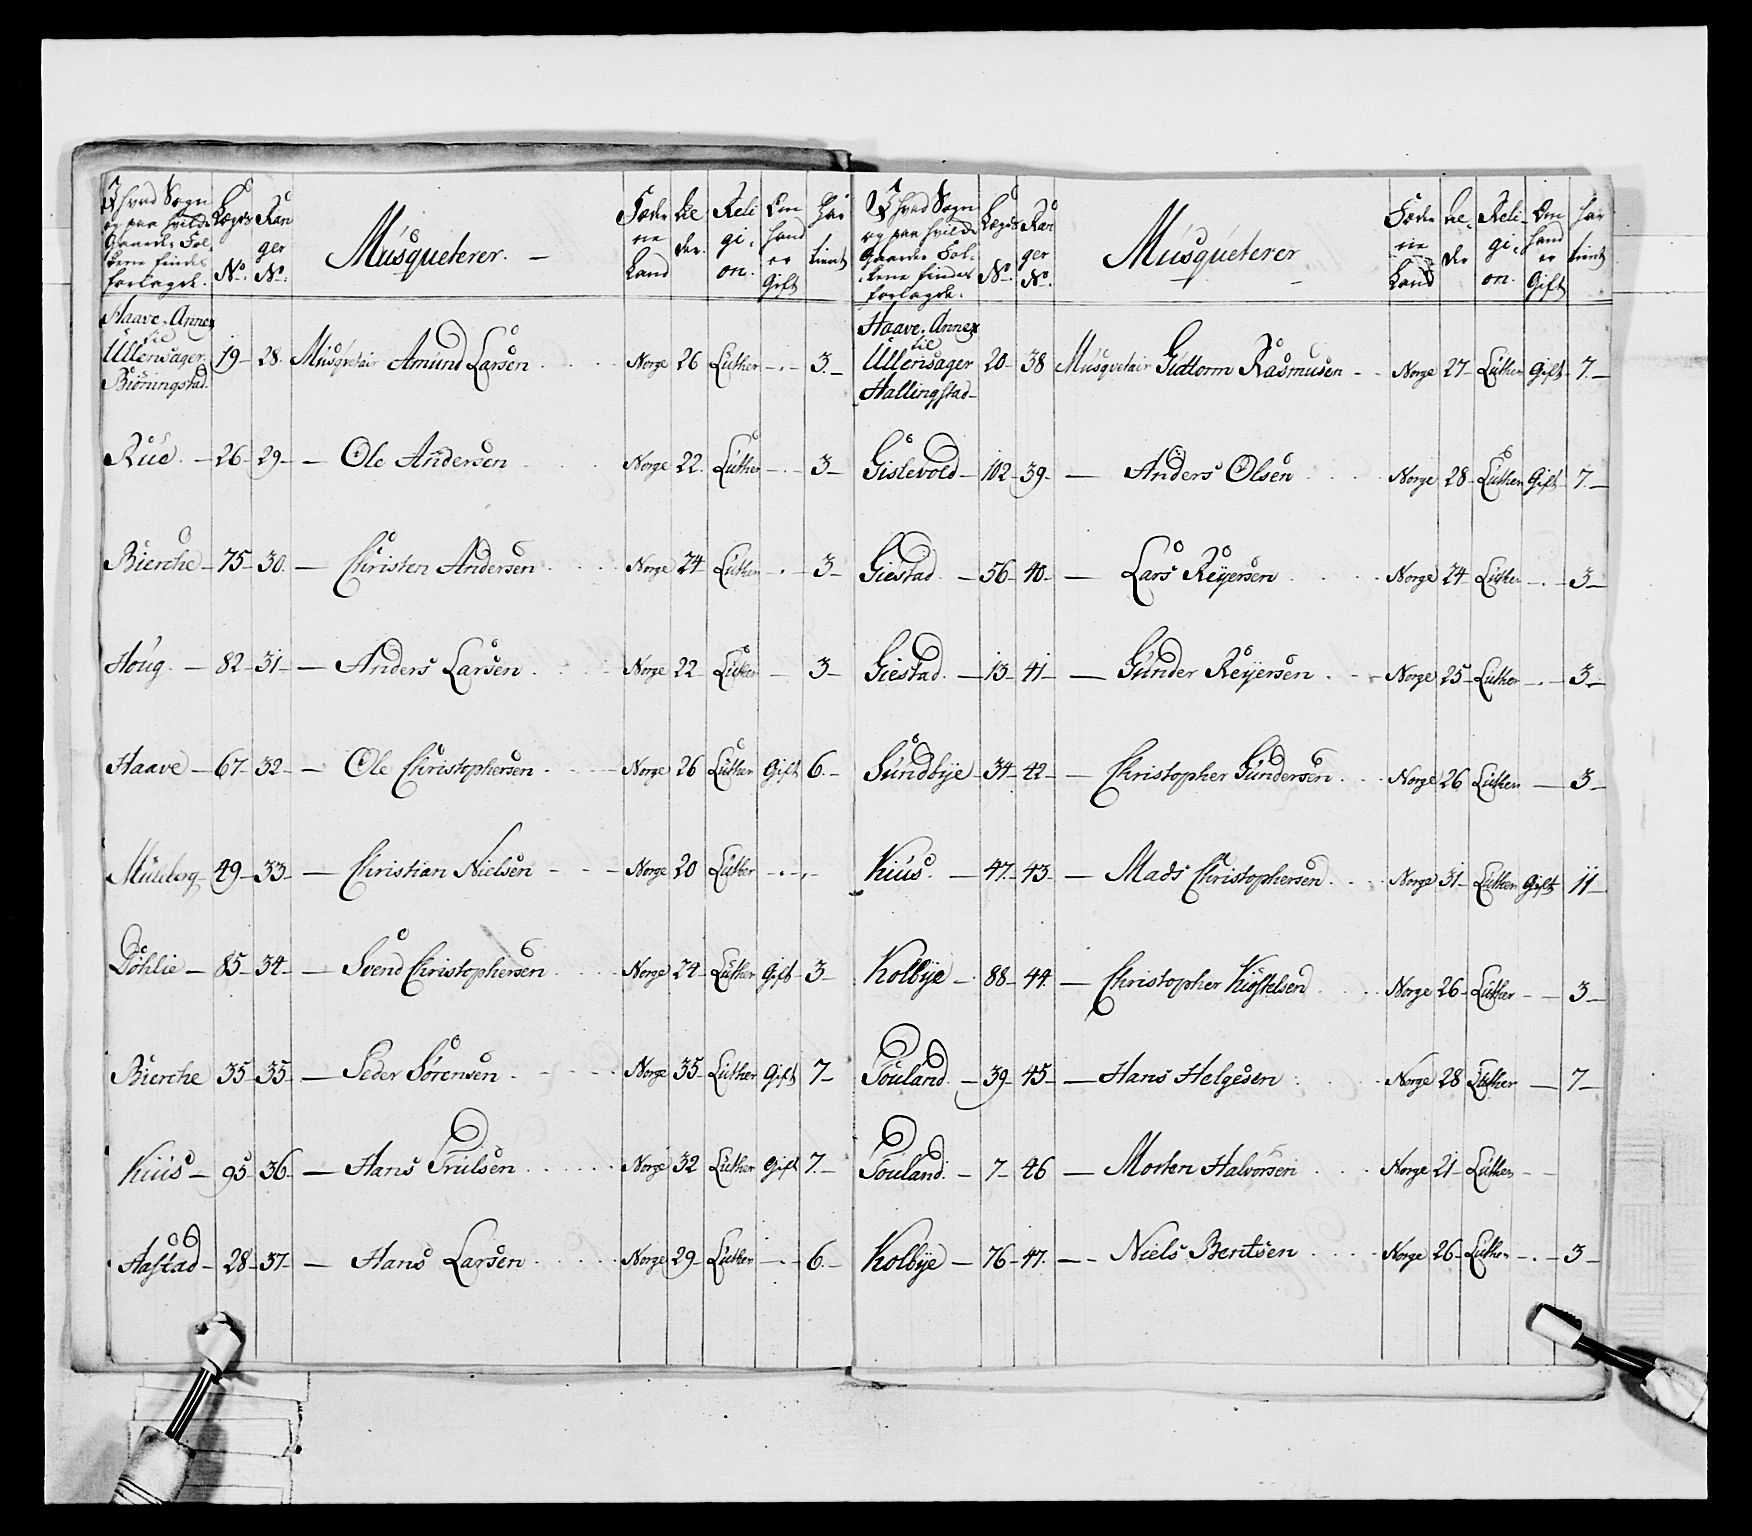 I hvad Sogn og paa hvilde Gaarder Folkene findes forlagde. | Lægds No. | Ranger No. | Musqueterer. | Fæderneland | Alder. | Religion. | Om hand er Gift | har tient
Haave Annex til Ullensager. Biöningstad. | 19 | 28 | Musquetair Amund Larsen | Norge | 26 | Luther | - | 3
Rüe | 26 | 29 | — Ole Andersen | Norge | 22 | Luther | - | 3
Bierche | 75 | 30 | — Christen Andersen | Norge | 24 | Luther | - | 3
Houg | 82 | 31 | — Anders Larsen | Norge | 22 | Luther | - | 3
Haave | 67 | 32 | — Ole Christophersen | Norge | 26 | Luther | Gift | 6
Mülberg | 49 | 33 | — Christian Nielsen | Norge | 20 | Luther | - | -
Döhlie | 85 | 34 | — Svend Christophersen | Norge | 24 | Luther | Gift | 3
Bierche | 35 | 35 | — Peder Sörensen | Norge | 35 | Luther | Gift | 7
Kiüs | 95 | 36 | — Hans Truilsen | Norge | 32 | Luther | Gift | 7
Hastad | 28 | 37 | — Hans Larsen | Norge | 29 | Luther | - | 6
I hvad Sogn og paa hvilde Gaarder Folkene findes forlagde. | Lægds No. | Ranger No. | Musqueterer | Fæderneland | Alder | Religion. | Om hand er Gift | har tient
Haave Annex til Ullensager Hallingstad | 20 | 38 | Musquetair Guttorm Rasmusen | Norge | 27 | Luther | Gift | 7
Gislevold | 102 | 39 | — Anders Olsen | Norge | 28 | Luther | Gift | 7
Giestad | 56 | 40 | — Lars Reyersen | Norge | 24 | Luther | - | 3
Giestad | 13 | 41 | — Gunder Reyersen | Norge | 25 | Luther | - | 3
Sundbye | 34 | 42 | — Christopher Gundersen | Norge | 26 | Luther | — | 3
Kiüs | 47 | 43 | — Mads Christophersen | Norge | 31 | Luther | Gift | 11
Kolbye | 88 | 44 | — Christopher Kiöstelsen | Norge | 26 | Luther | - | 3
Touland | 39 | 45 | — Hans Helgesen | Norge | 28 | Luther | — | 7
Touland | 7 | 46 | — Morten Halvorsen | Norge | 21 | Luther | -
Kolbye | 76 | 47 | — Niels Bentsen | Norge | 26 | Luther | - | 3